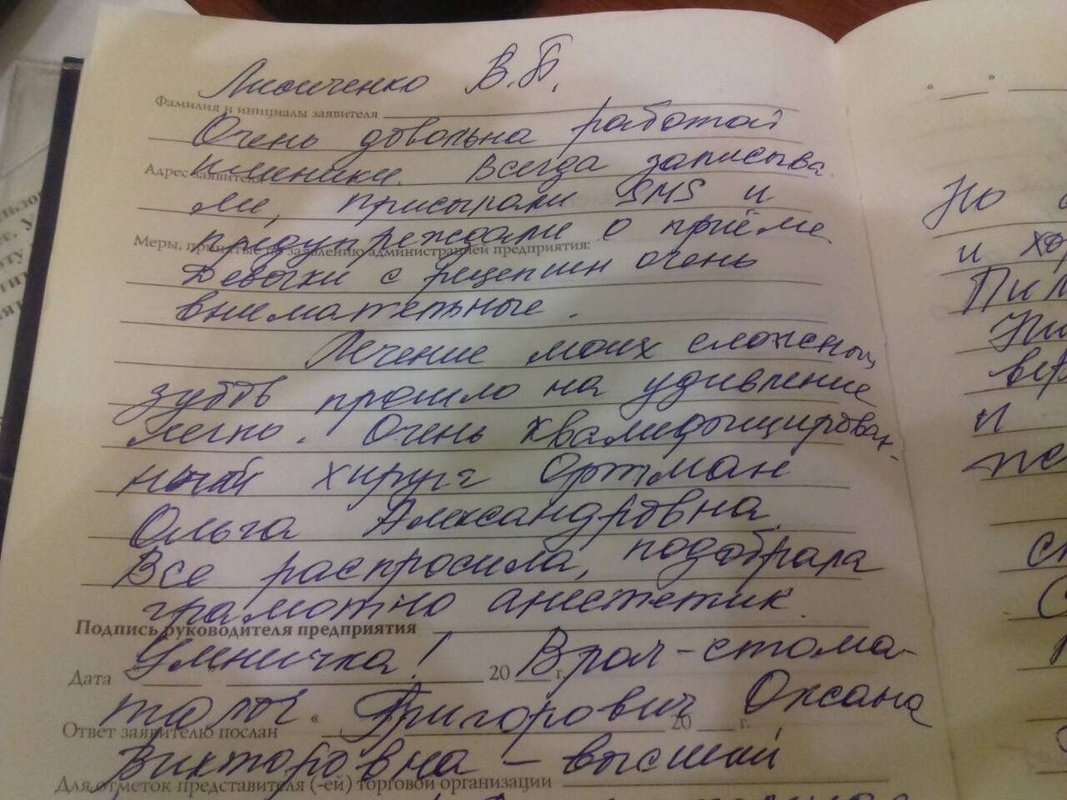 Лисиченко В.Б.
Фамилия и инициалы заявителя
Очень довольна работой
клиники. Всегда записыва
Адрес заявителя
ли, присылали SMS и
предупреждали о приёме.
Меры, принятые по заявлению администрацией предприятия:
Девочки с рецепшн очень
внимательные.
Лечение моих сложных
зубов прошло на удивление
легко. Очень квалифицирован-
ный хирург Ортман
Ольга Александровна.
Все расспросила, подобрала
грамотно анестетик.
Подпись руководителя предприятия
Умничка! Врач-стома-
Дата 20 г.
толог Григорович Оксана
Ответ заявителю послан « 20 г.
Викторовна – высший
Для отметок представителя (-ей) торговой организации
Но
и